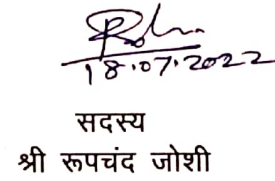 18.07.2022
सदस्य
श्री रूपचंद जोशी